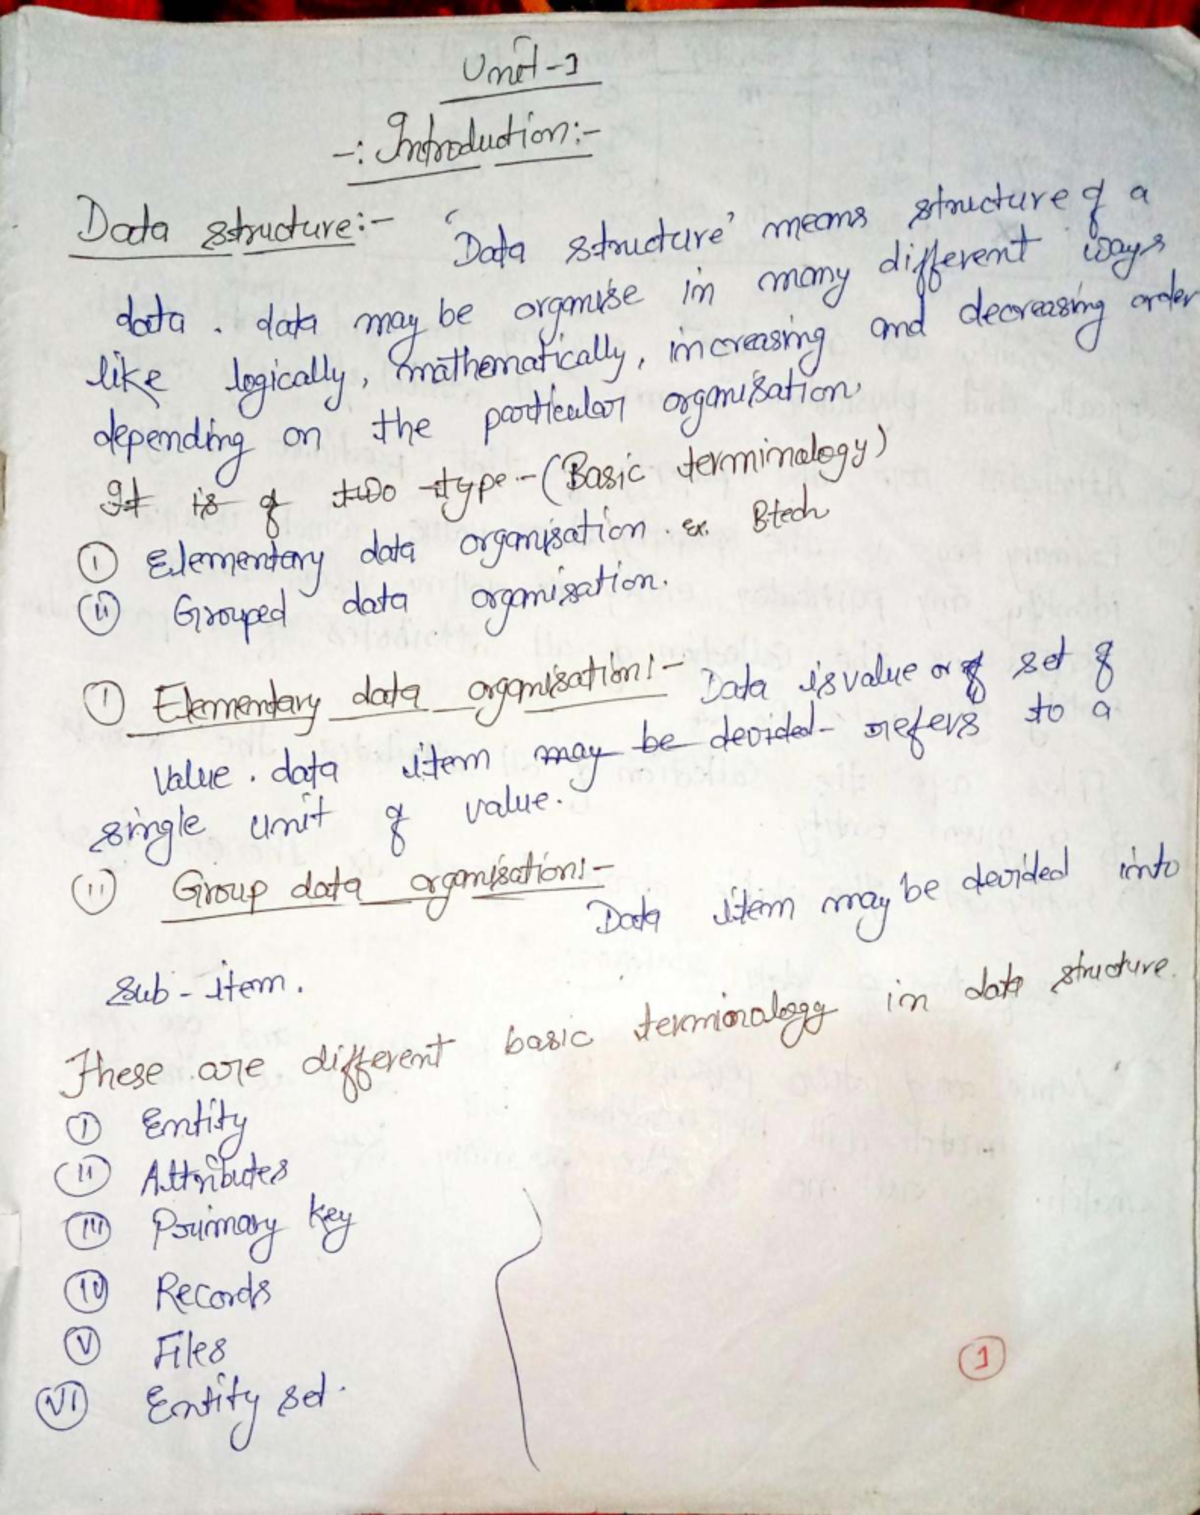 Unit-1
-: Introduction:-
Data structure:- 'Data structure' means structure of a
data. data may be organise in many different ways
like logically, mathematically, increasing and decreasing order
depending on the particular organisation
It is of two type-(Basic terminology)
(i) Elementary data organisation. Ex. Btech
(ii) Grouped data organisation.
(i) Elementary data organisation:- Data is value or set of
value. data item may be devided refers to a
single unit of value.
(ii) Group data organisation:-
Data item may be devided into
sub-item.
These are different basic terminology in data structure.
(i) Entity
(ii) Attributes
(iii) Primary key
(iv) Records
(v) Files
(vi) Entity set.
1